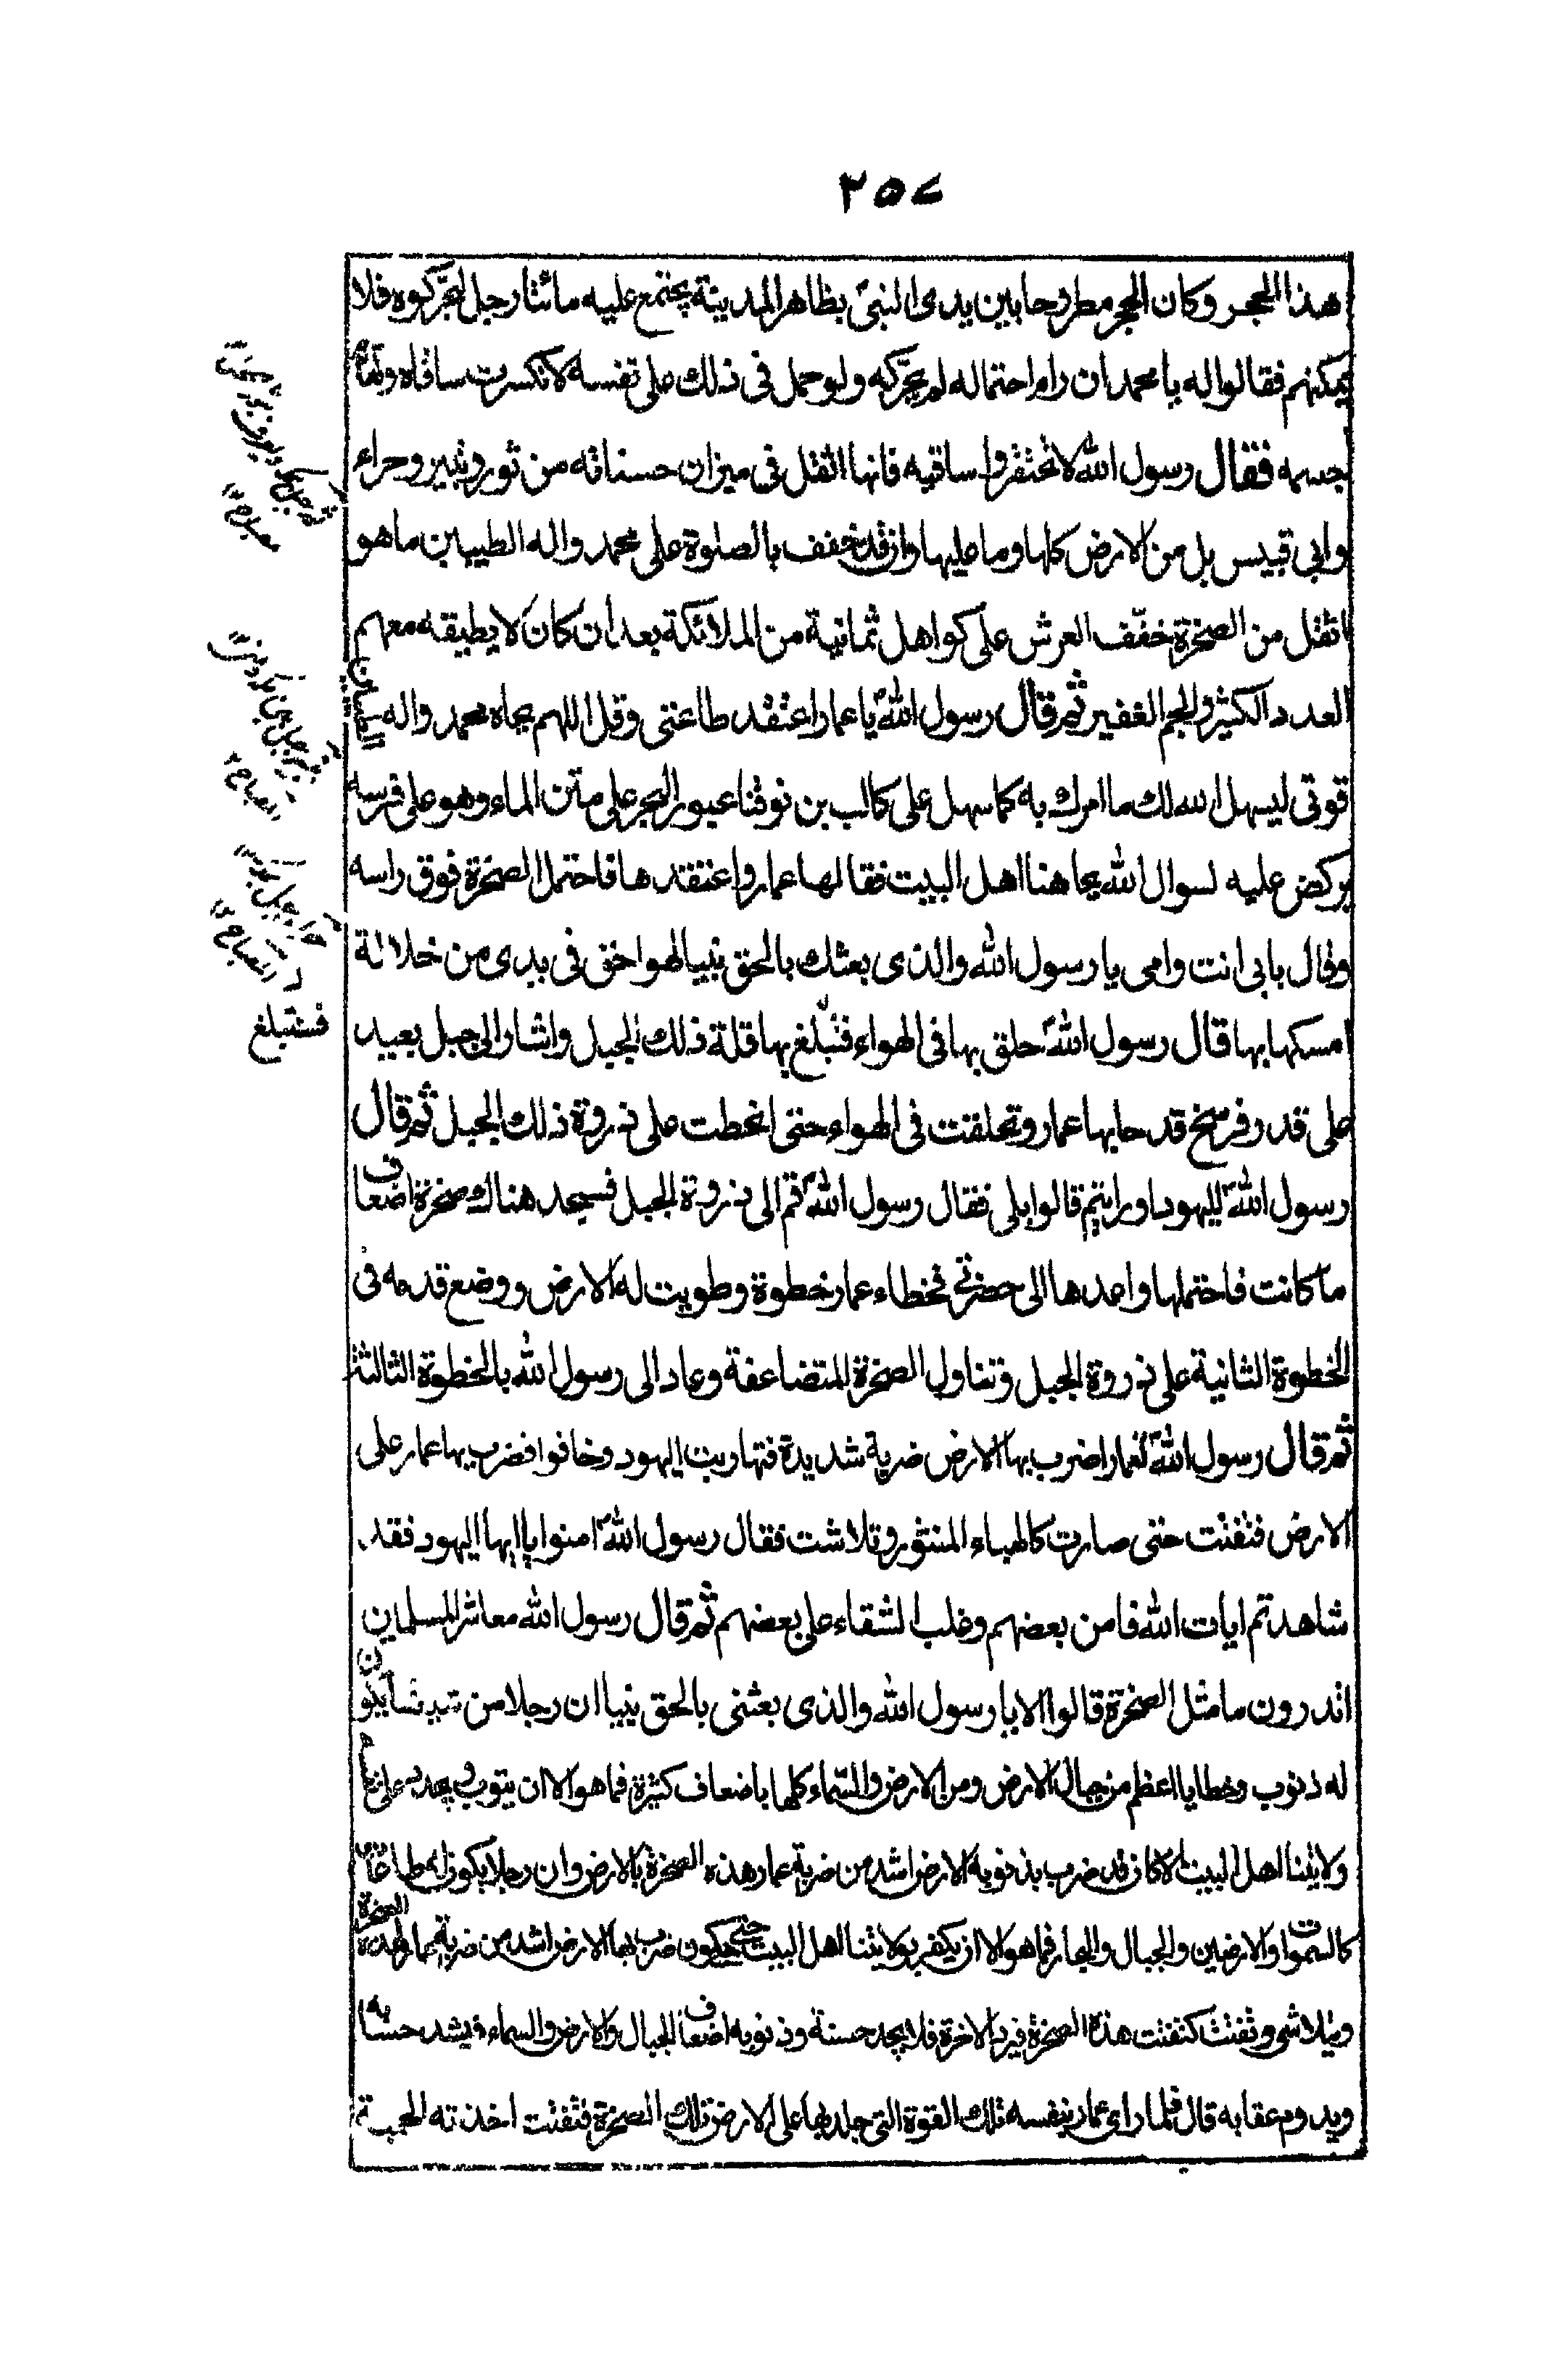 ٢٥٧
هذا الحجر وكان الحجر مطروحا بين يدى النبىّ بظاهر المدينة يجتمع عليه مائتا رجل ليحرّكوه فلا
يمكنهم فقالوا له يا محمد ان رام احتماله لم يحرّكه ولو حمل فى ذلك على نفسه لانكسرت ساقاه وتهدّم
جسمه فقال رسول الله لا تحتقروا ساقيه فانها اثقل فى ميزان حسناته من ثور وثبير وحراء
وابى قبيس بل من الارض كلها وما عليها وان قد خفف بالصلوة على محمد واله الطيبين ما هو
اثقل من الصخرة خفّف العرش على كواهل ثمانية من الملائكة بعد أن كان لا يطيقه معهم
العدد الكثير والجم الغفير ثم قال رسول اللهؐ يا عمار اعتقد طاعتى وقل اللهم بجاه محمد واله الطيبين
قوتى ليسهل الله لك ما امرك به كما سهل على كالب بن يوفنا عبور البحر على متن الماء وهو على فرسه
يركض عليه لسوال الله بجاهنا اهل البيت فقالها عمار واعتقدها فاحتمل الصخرة فوق راسه
وقال بابى انت وامى يا رسول الله والذى بعثك بالحق نبيا لهو اخف فى يدى من خلالة
امسكها بها قال رسول اللهؐ حلق بها فى الهواء فتبلغ بها قلة ذلك الجبل واشار الى جبل بعيد
فستبلغ
على قدر فرسخ قد حابها عمار وتحلقت فى الهواء حتى انحطت على ذروة ذلك الجبل ثم قال
رسول اللهؐ لليهود اورايتم قالوا بلى فقال رسول اللهؐ قم الى ذروة الجبل فستجد هناك صخرة اضعاف
ما كانت فاحتملها واعدها الى حضرتى فخطاء عمار خطوة وطويت له الارض ووضع قدمه فى
الخطوة الثانية على ذروة الجبل وتناول الصخرة المتضاعفة وعاد الى رسول الله بالخطوة الثالثة
ثم قال رسول اللهؐ لعمار اضرب بها الارض ضربة شديدة فتهاربت اليهود وخافوا فضرب بها عمار على
الارض فتفتت حتى صارت كالهباء المنثور وتلاشت فقال رسول اللهؐ امنوا يا ايها اليهود فقد
شاهدتم ايات الله فامن بعضهم وغلب الشقاء على بعضهم ثم قال رسول الله معاشر المسلمين
اتدرون ما مثل الصخرة قالوا لا يا رسول الله والذى بعثنى بالحق نبيا ان رجلا من شيعتنا يكون
له ذنوب وخطايا اعظم من جبال الارض ومن الارض والسّماء كلها باضعاف كثيرة فما هو الا ان يتوب ويجدد على نفسه
ولايتنا اهل البيت الا كان قد ضرب بذنوبه الارض اشد من ضربة عمار هذه الصخرة بالارض وان رجلا يكون له طاعات
كالسموات والارضين والجبال والبحار فما هو الا ان يكفر بولايتنا اهل البيت حتى يكون ضرب بها الارض اشد من ضربة عمار لهذه الصخرة
ويتلاشى وتفتت كتفتت هذه الصخرة فيرد الاخرة فلا يجد حسنة وذنوبه اضعاف الجبال والارض والسماء فيشد حسابه
ويدوم عقابه قال فلما راى عمار بنفسه تلك القوة التى جلد بها على الارض تلك الصخرة فتفتت اخذته